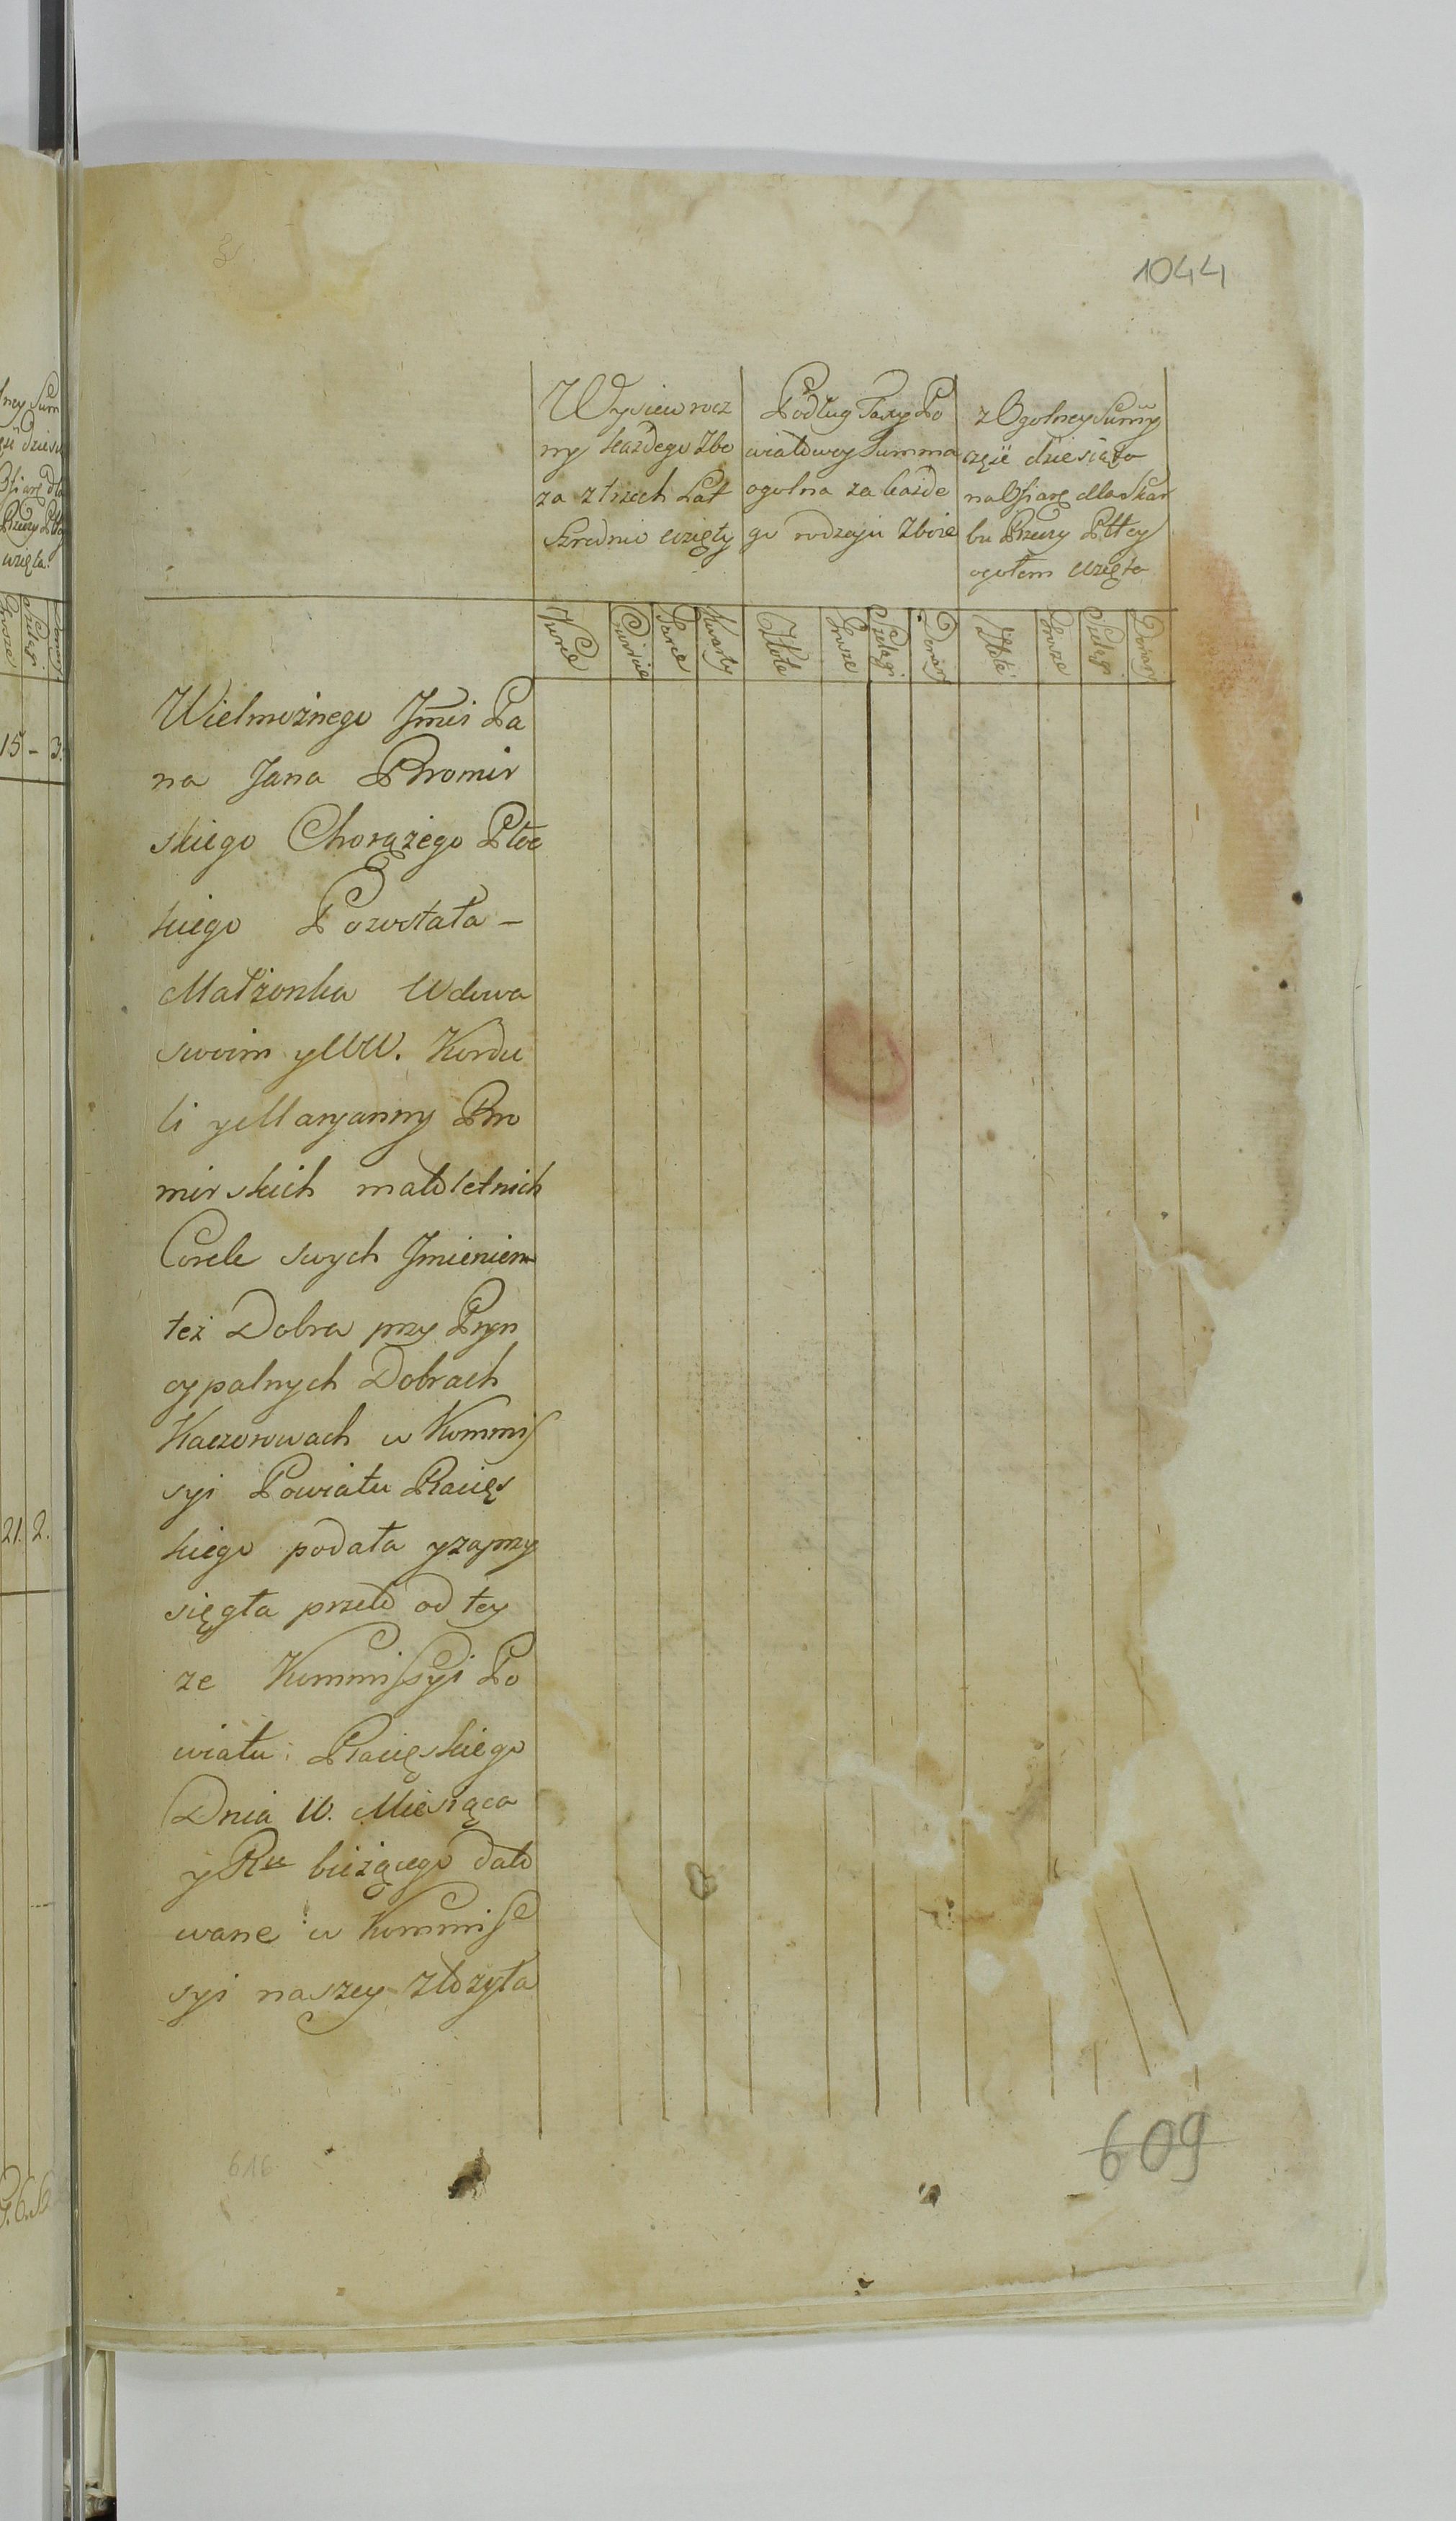 1044
Wysiew rocz
ny każdego Zbo
za z trzech Lat
Srednio wzięty
Podług Taxy Po
wiatowey Summa
ogolna za każde
go rodzaju Zboże
z Ogolney Summy
częśc dziesiąta
na Ofiarę dla Skar
bu Rzeczy Pltey
ogołem wzięta
Korce
Cwierci
Garce
Kwarty
Złote
Grosze
Szelągi
Denary
Złote
Grosze
Szelągi
Denary
Wielmoznego Jmci Pa
na Jana Bromir
skiego Chorążego Płoc
kiego Pozostała —
Małżonka Wdowa
swoim y WW. Kordu
li y Maryanny Bro
mirskich małoletnich
Corek swych Jmieniem
też Dobra przy Pryn
cypalnych Dobrach
Kaczorowach w Kommis
syi Powiatu Racięs
kiego podała y zaprzy
sięgła przeto od tey
ze Kommissyi Po
wiatu Racięskiego
Dnia 10. Miesiąca
y Ru bieżącego dato
wane w Kommis
syi naszey złożyła
609
616
15 — 3.
21. 2.